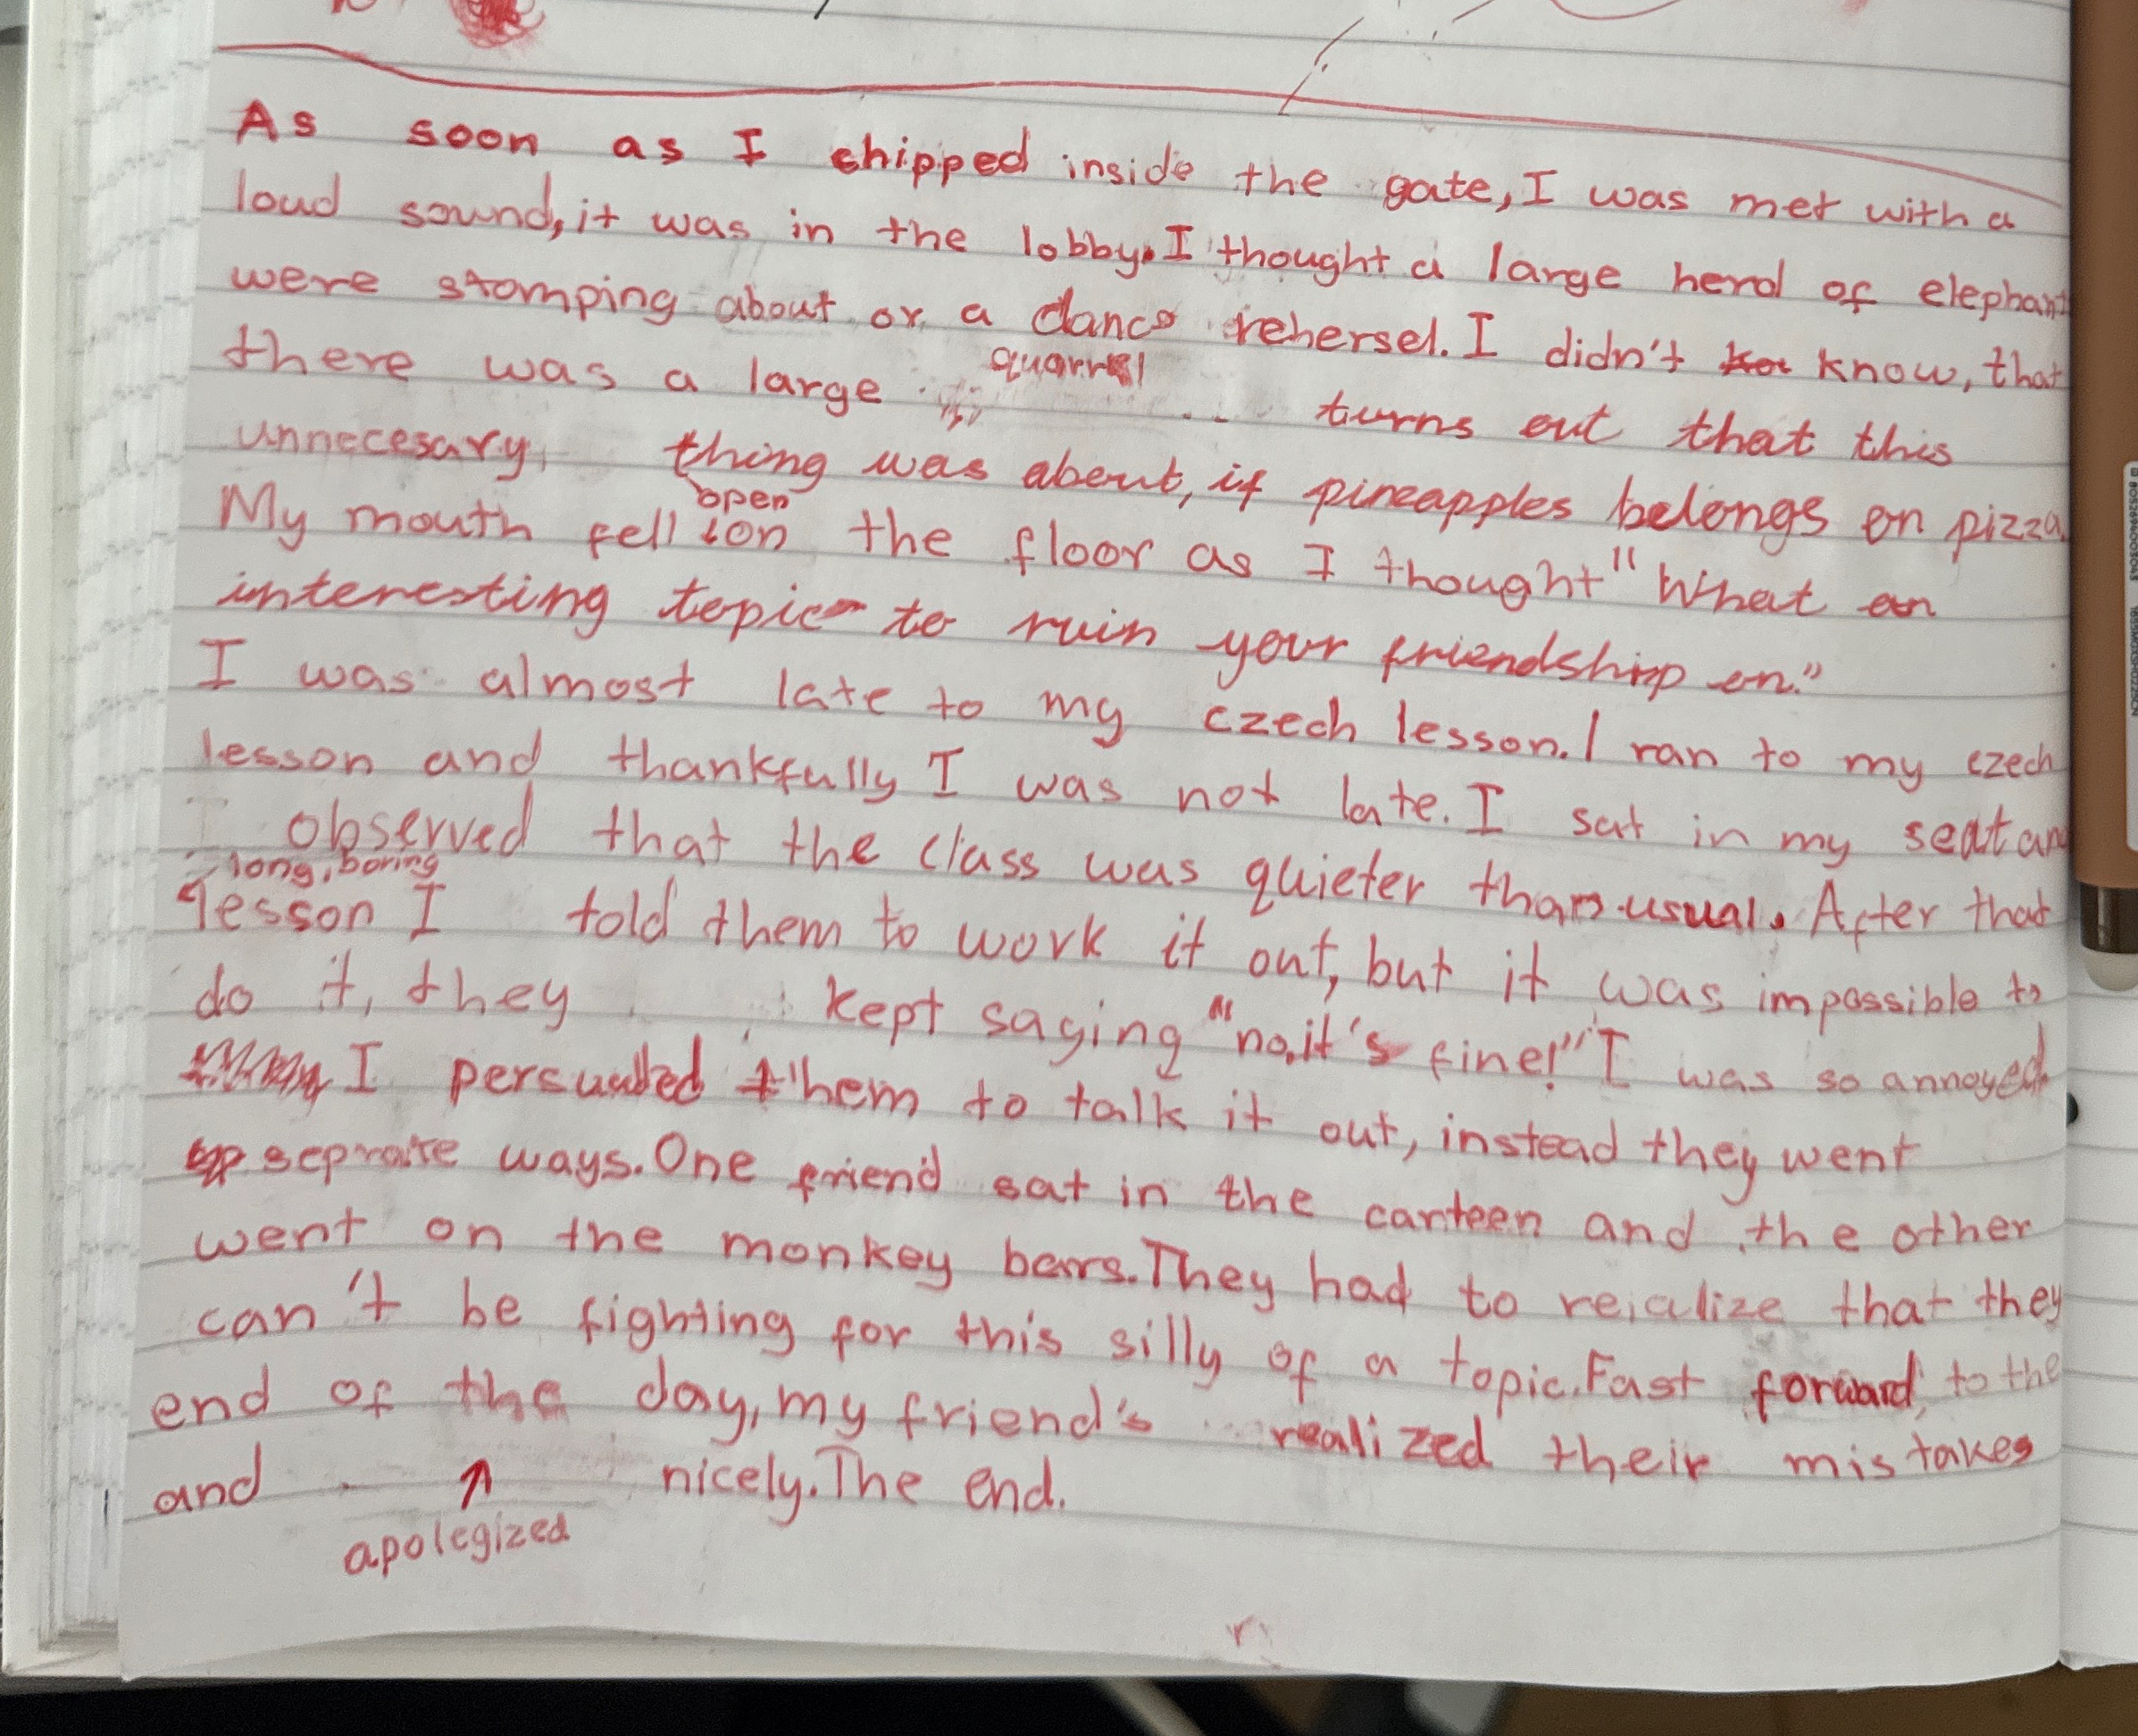 As soon as I chipped inside the gate, I was met with a
loud sound, it was in the lobby. I thought a large herd of elephant
were stomping about or a dance rehersel. I didn't know, that
there was a large quarrel turns out that this
unnecesary, thing was about, if pineapples belongs on pizza.
My mouth fell open on the floor as I thought "What an
interesting topic to ruin your friendship on."
I was almost late to my czech lesson. I ran to my czech
lesson and thankfully I was not late. I sat in my seat an
I observed that the class was quieter than usual. After that
long, boring
lesson I told them to work it out, but it was impossible to
do it, they kept saying "no, it's fine!" I was so annoyed
I persuaded them to talk it out, instead they went
seprate ways. One friend sat in the canteen and the other
went on the monkey bars. They had to reialize that they
can't be fighting for this silly of a topic. Fast forward, to the
end of the day, my friend's realized their mistakes
and nicely. The end.
apolegized